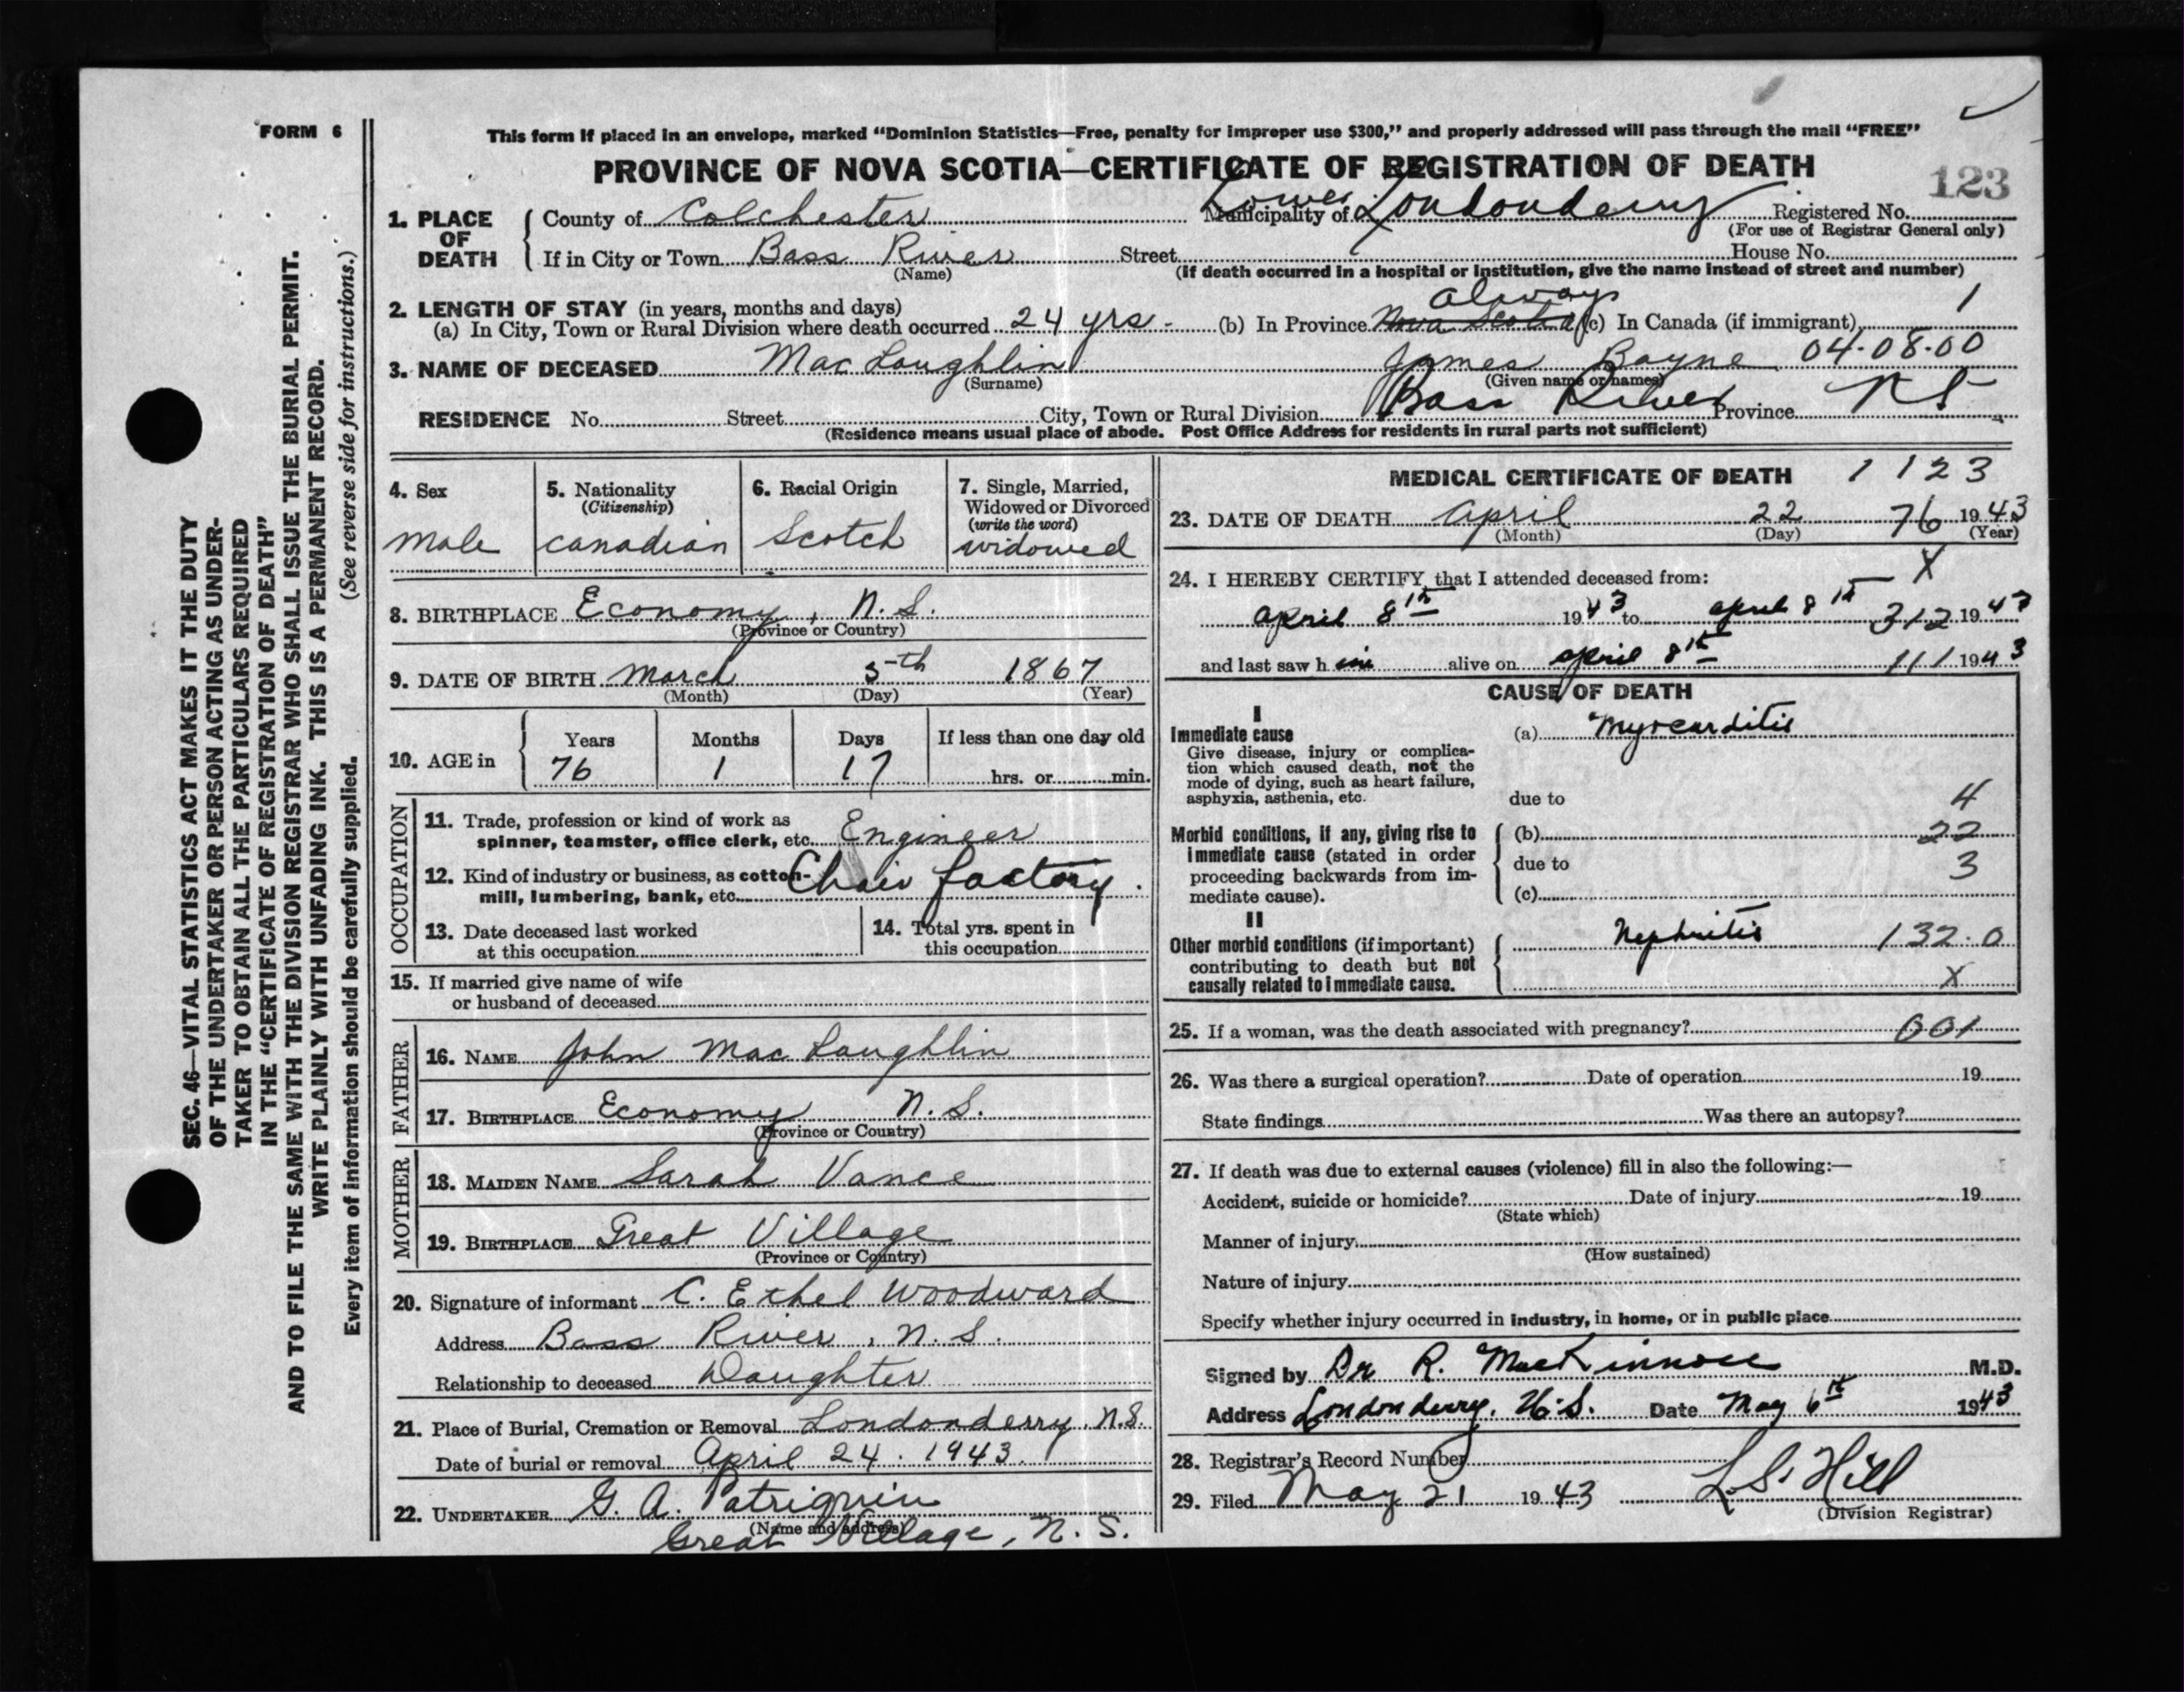 FORM 6
This form if placed in an envelope, marked "Dominion Statistics—Free, penalty for improper use $300," and properly addressed will pass through the mail "FREE"
PROVINCE OF NOVA SCOTIA—CERTIFICATE OF REGISTRATION OF DEATH
123
1. PLACE OF DEATH
County of Colchester Municipality of Lower Londonderry Registered No.
(For use of Registrar General only)
If in City or Town Bass River Street House No.
(Name) (If death occurred in a hospital or institution, give the name instead of street and number)
2. LENGTH OF STAY (in years, months and days)
(a) In City, Town or Rural Division where death occurred 24 yrs. (b) In Province Nova Scotia always (c) In Canada (if immigrant) 1
3. NAME OF DECEASED MacLaughlin James Bayne 04.08.00
(Surname) (Given name or names)
RESIDENCE No. Street City, Town or Rural Division Bass River Province N S
(Residence means usual place of abode. Post Office Address for residents in rural parts not sufficient)
4. Sex
male
5. Nationality
(Citizenship)
Canadian
6. Racial Origin
Scotch
7. Single, Married,
Widowed or Divorced
(write the word)
widowed
8. BIRTHPLACE Economy, N.S.
(Province or Country)
9. DATE OF BIRTH March 5th 1867
(Month) (Day) (Year)
10. AGE in
Years Months Days If less than one day old
76 1 17 hrs. or min.
OCCUPATION
11. Trade, profession or kind of work as
spinner, teamster, office clerk, etc. Engineer
12. Kind of industry or business, as cotton-
mill, lumbering, bank, etc. Chair factory.
13. Date deceased last worked
at this occupation
14. Total yrs. spent in
this occupation
15. If married give name of wife
or husband of deceased
FATHER
16. NAME John MacLaughlin
17. BIRTHPLACE Economy N.S.
(Province or Country)
MOTHER
18. MAIDEN NAME Sarah Vance
19. BIRTHPLACE Great Village
(Province or Country)
20. Signature of informant C. Ethel Woodward
Address Bass River, N.S.
Relationship to deceased Daughter
21. Place of Burial, Cremation or Removal Londonderry, N.S.
Date of burial or removal April 24. 1943.
22. UNDERTAKER G. A. Patriquin
(Name and address)
Great Village, N.S.
MEDICAL CERTIFICATE OF DEATH 1 1 2 3
23. DATE OF DEATH April 22 76 1943
(Month) (Day) (Year)
24. I HEREBY CERTIFY that I attended deceased from: X
April 8th 1943 to April 8th 312 1943
and last saw him alive on April 8th 111 1943
CAUSE OF DEATH
I
Immediate cause
Give disease, injury or complica-
tion which caused death, not the
mode of dying, such as heart failure,
asphyxia, asthenia, etc.
(a) Myocarditis
due to 4
Morbid conditions, if any, giving rise to
immediate cause (stated in order
proceeding backwards from im-
mediate cause).
(b) 22
due to 3
(c)
II
Other morbid conditions (if important)
contributing to death but not
causally related to immediate cause.
Nephritis 132.0
X
25. If a woman, was the death associated with pregnancy? 001
26. Was there a surgical operation? Date of operation 19
State findings Was there an autopsy?
27. If death was due to external causes (violence) fill in also the following:—
Accident, suicide or homicide? Date of injury 19
(State which)
Manner of injury
(How sustained)
Nature of injury
Specify whether injury occurred in industry, in home, or in public place
Signed by Dr R. MacKinnon M.D.
Address Londonderry, N.S. Date May 6th 1943
28. Registrar's Record Number
29. Filed May 21 1943 L.S. Hill
(Division Registrar)
SEC. 46—VITAL STATISTICS ACT MAKES IT THE DUTY
OF THE UNDERTAKER OR PERSON ACTING AS UNDER-
TAKER TO OBTAIN ALL THE PARTICULARS REQUIRED
IN THE "CERTIFICATE OF REGISTRATION OF DEATH"
AND TO FILE THE SAME WITH THE DIVISION REGISTRAR WHO SHALL ISSUE THE BURIAL PERMIT.
WRITE PLAINLY WITH UNFADING INK. THIS IS A PERMANENT RECORD.
Every item of information should be carefully supplied. (See reverse side for instructions.)